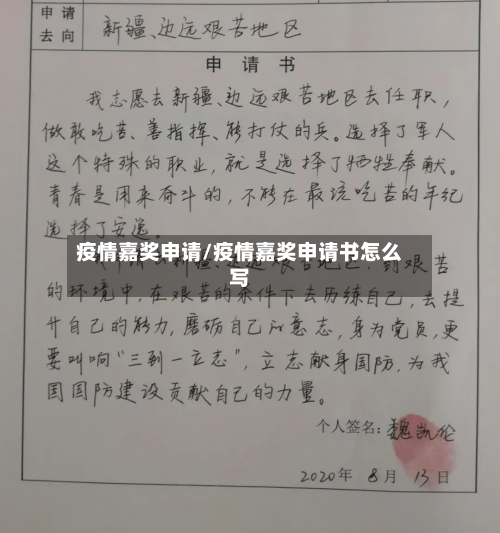 申请
去向
新疆、边远艰苦地区
申请书
我志愿去新疆、边远艰苦地区去任职，
做敢吃苦、善指挥、能打仗的兵。选择了军人
这个特殊的职业，就是选择了牺牲奉献。
青春是用来奋斗的，不能在最该吃苦的年纪
选择了安逸。
疫情嘉奖申请/疫情嘉奖申请书怎么
写
到艰苦
的环境中，在艰苦的条件下去历练自己，去提
升自己的能力，磨砺自己的意志，身为党员，更
要叫响“三到一立志”，立志献身国防，为我
国国防建设贡献自己的力量。
个人签名：魏凯伦
2020年 8月 13日